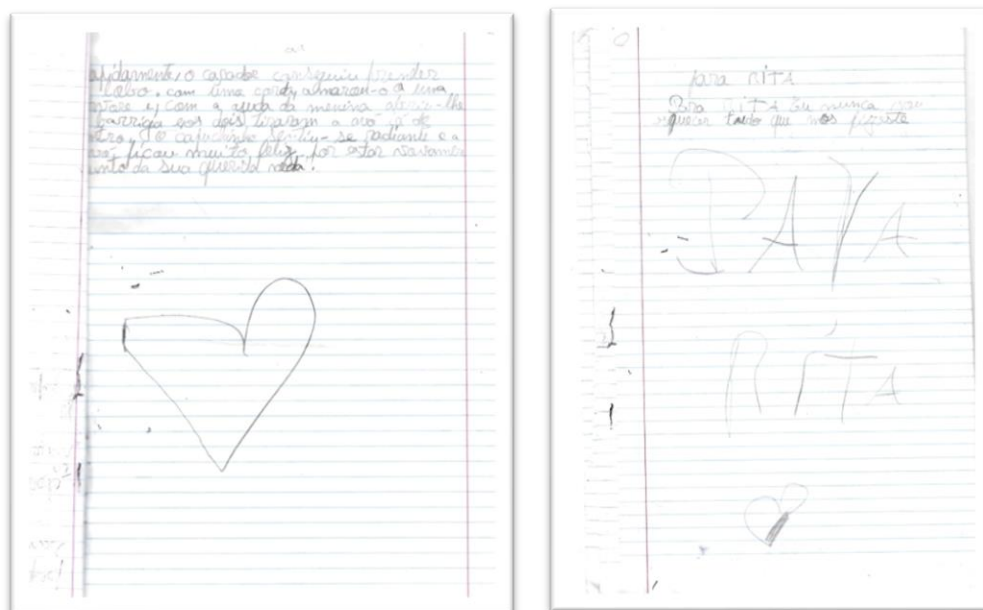 apidamente, o caçador conseguiu prender
lobo, com uma corda, amarrou-o a uma
e, com a ajuda da menina abriu-lhe
barriga e os dois tiraram a avó já de
ntro. O capuchinho sentiu-se radiante e a
avó ficou muito feliz, por estar novamen
unto da sua querida neta.
para RITA
Para RITA Eu nunca vou
esquecer tudo que nos fizeste
PARA
RITA